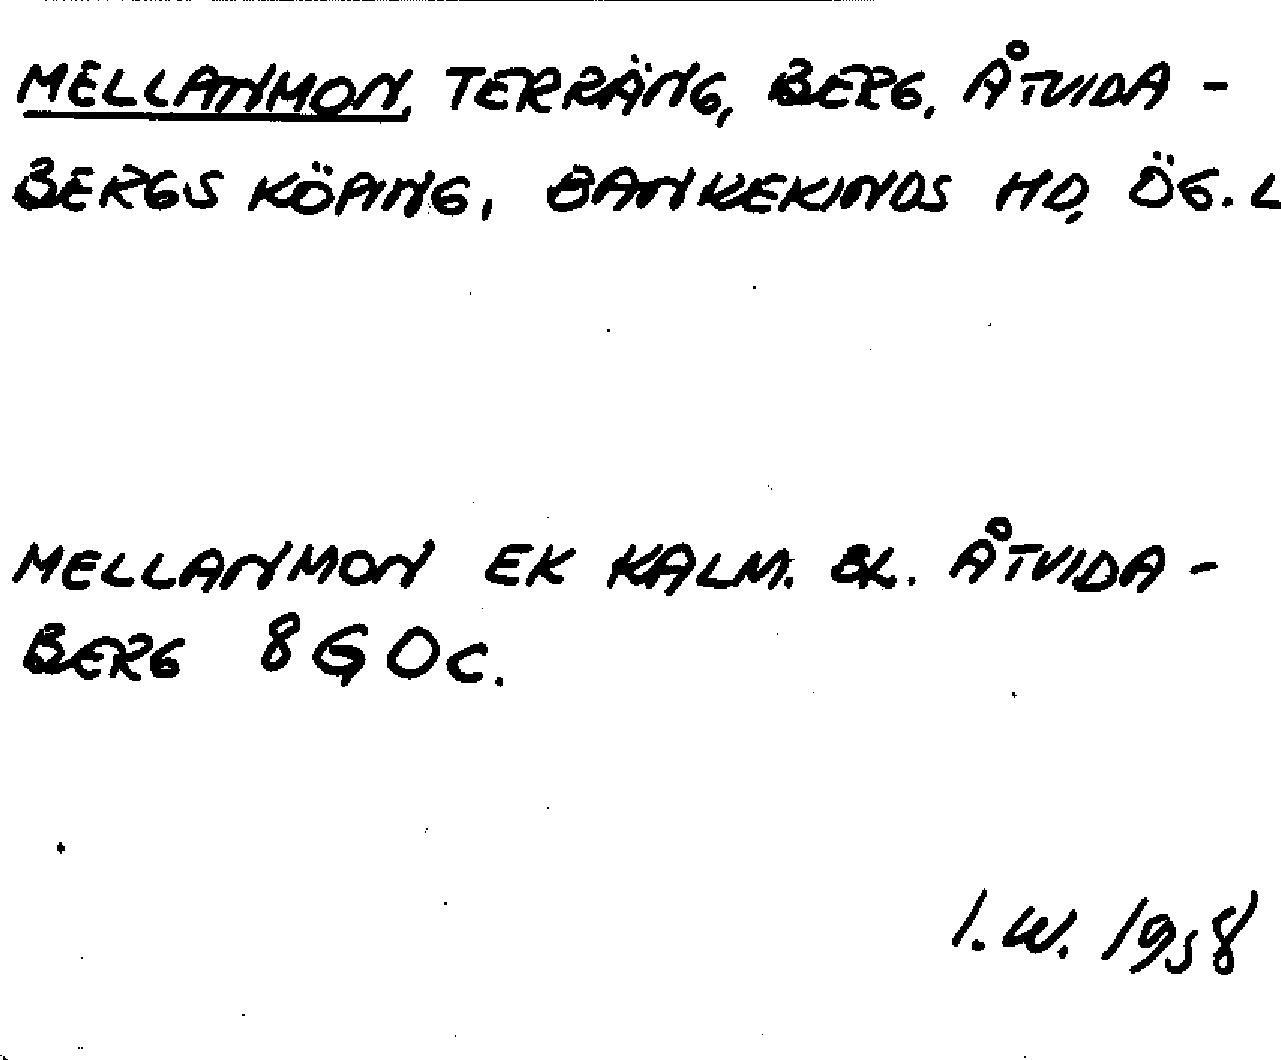 MELLANMON, TERRÄNG, BERG, ÅTVIDA-
BERGS KÖPING, BANKEKINDS HD, ÖG. L
MELLANMON EK KALM. BL. ÅTVIDA-
BERG 8G0c.
I.W. 1958